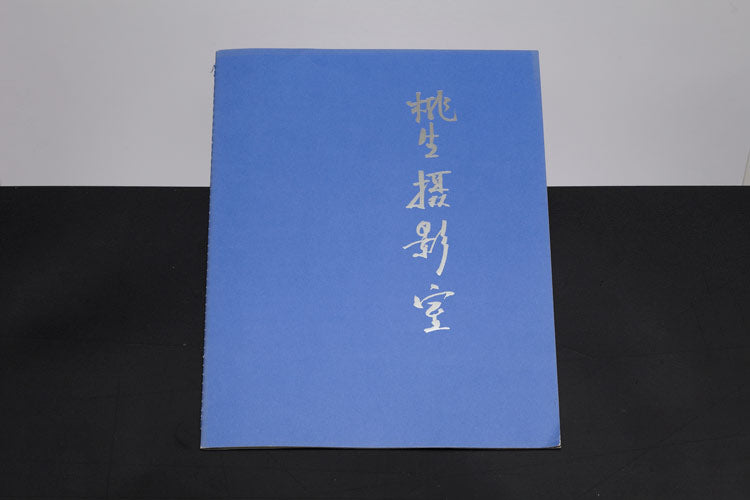 桃生摄影室